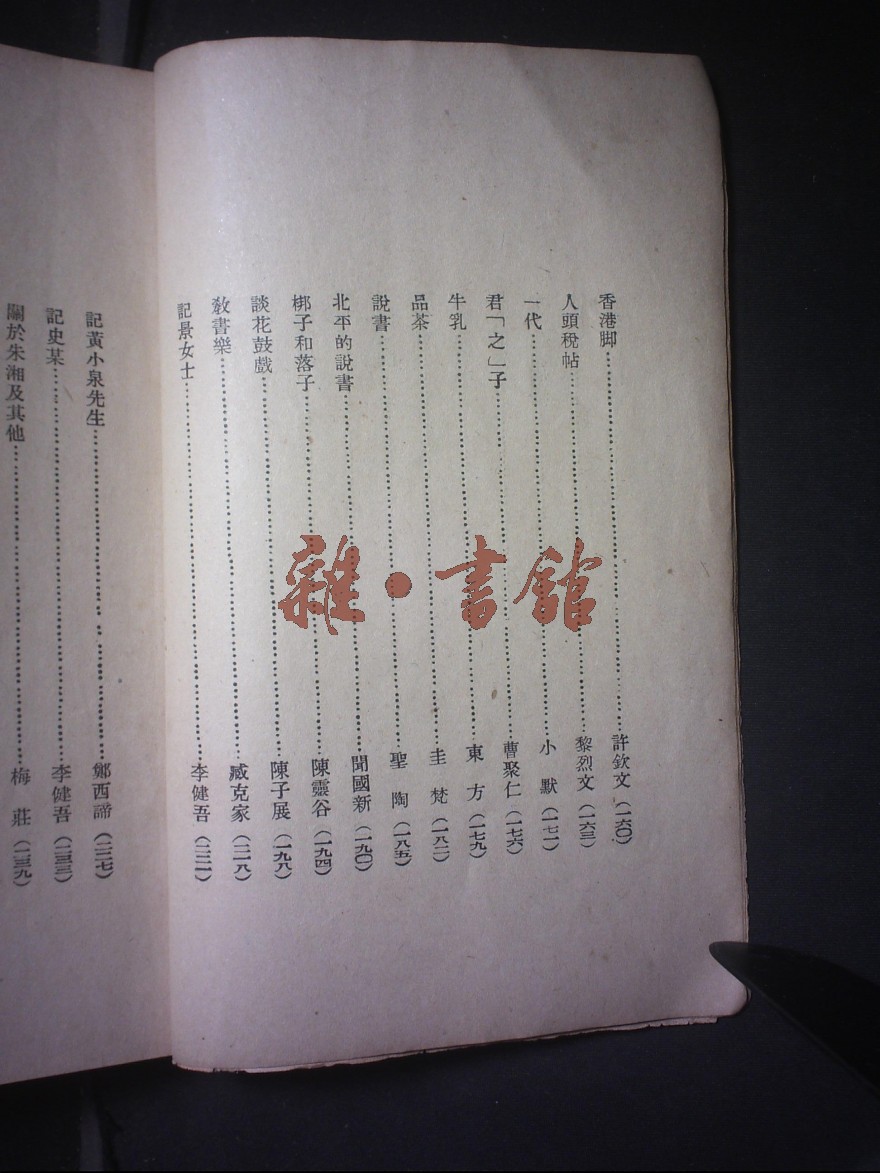 香港脚……許欽文（一六〇）
人頭稅帖……黎烈文（一六三）
一代……小默（一七一）
君「之」子……曹聚仁（一七六）
牛乳……東方（一七九）
品茶……圭梵（一八二）
說書……聖陶（一八五）
北平的說書……聞國新（一九〇）
梆子和落子……陳靈谷（一九四）
談花鼓戲……陳子展（一九八）
敎書樂……臧克家（二一八）
記景女士……李健吾（二二一）
記黃小泉先生……鄭西諦（二二七）
記史某……李健吾（二三三）
關於朱湘及其他……梅莊（二三九）
雜·書館